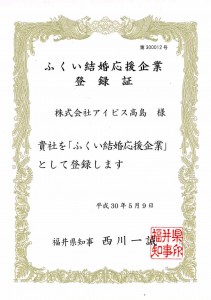 第300012号
ふくい結婚応援企業
登録証
株式会社アイビス高島 様
貴社を「ふくい結婚応援企業」
として登録します
平成30年5月9日
福井県知事 西川一誠
福井県
知事印